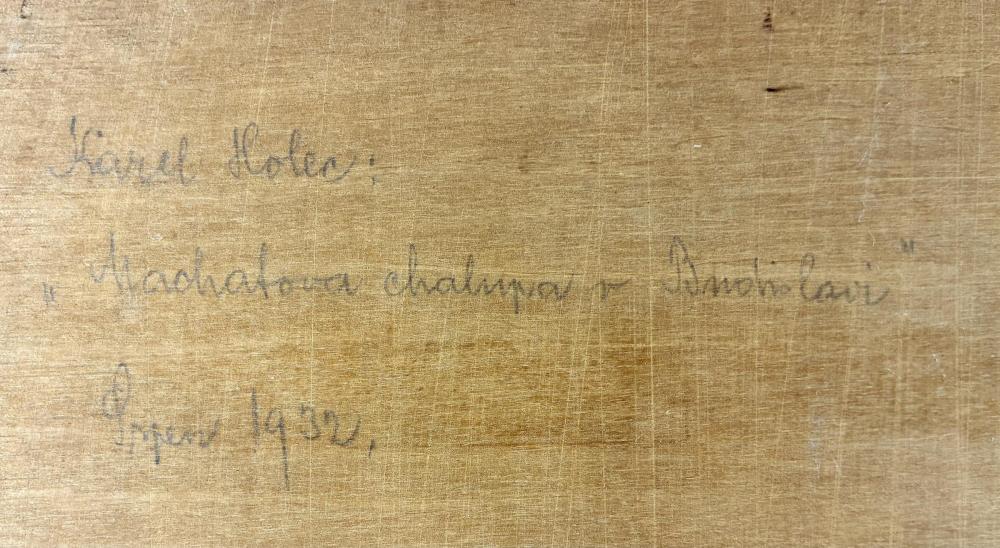 Karel Holec:
„Machatova chalupa v Budislavi"
Srpen 1932.